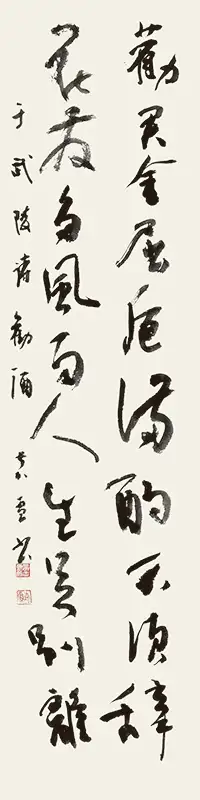 勸君金屈卮滿酌不須辭
花發多風雨人生足別離
于武陵詩勸酒